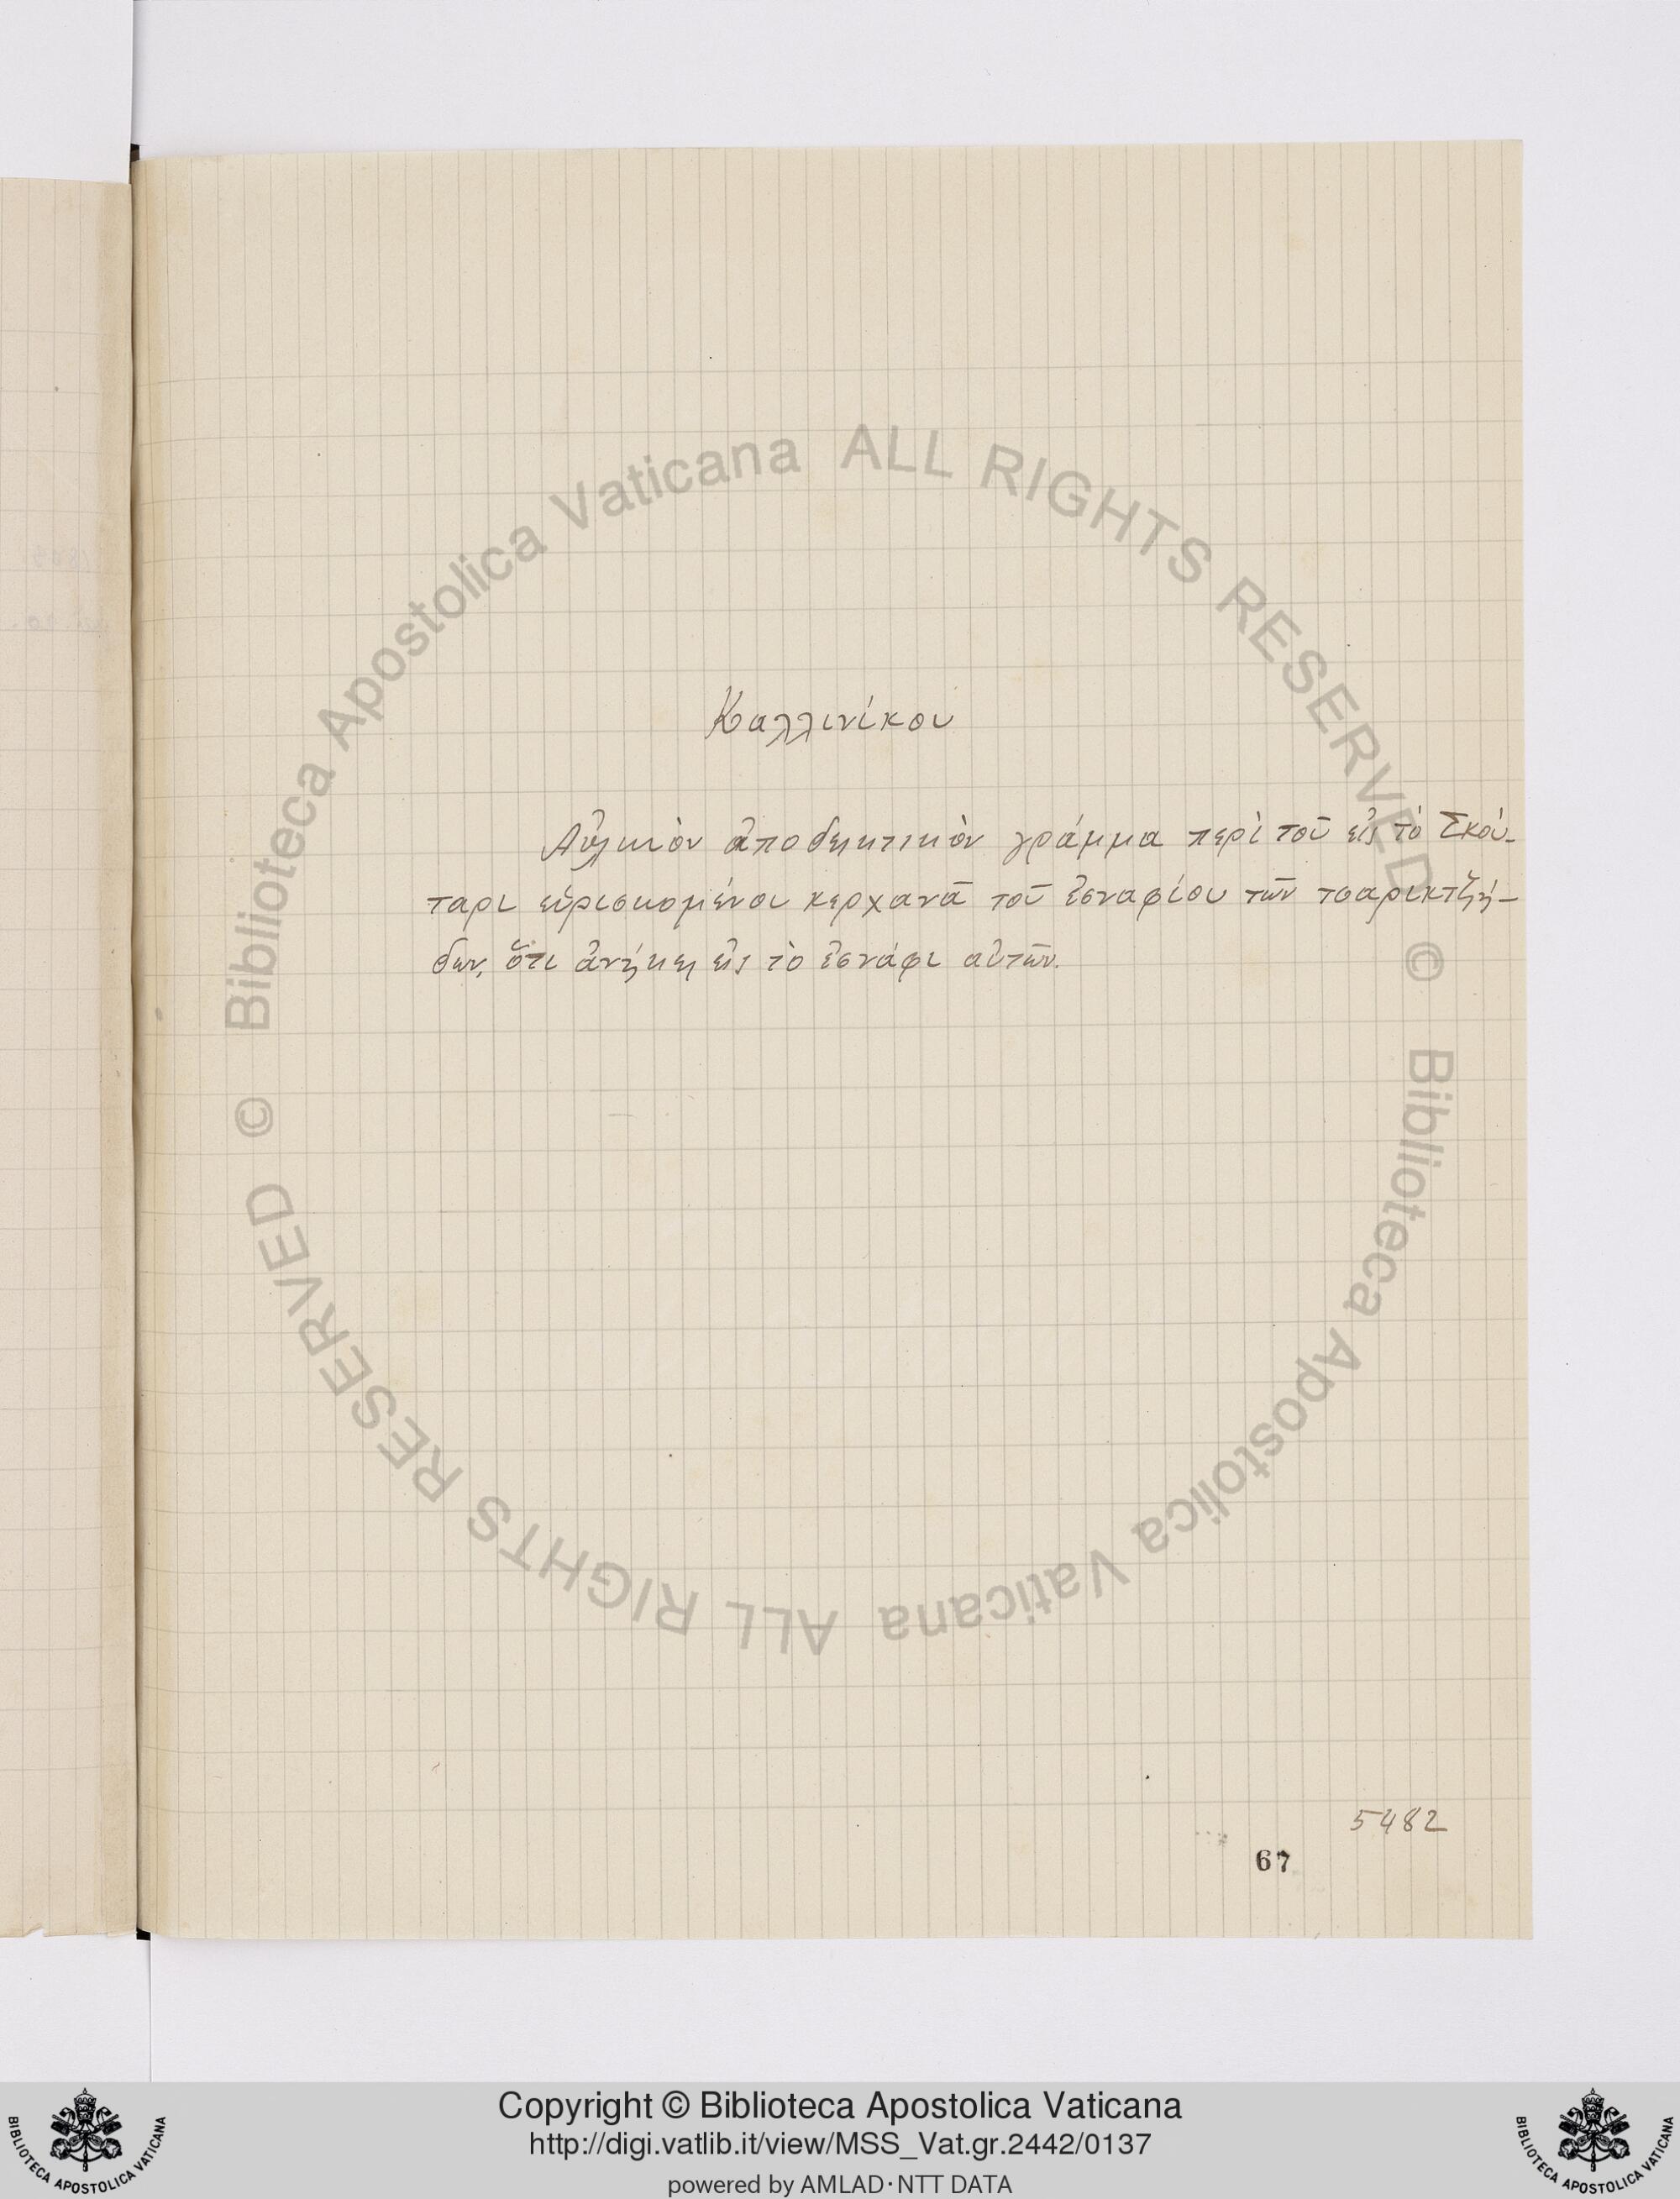 Καλλινίκου
ἀποδεικτικὸν γράμμα περὶ τοῦ εἰς τὸ Σκού-
ταρι εὑρισκομένου κερχανᾶ τοῦ ἐσναφίου τῶν τσαρικτζή-
δων, ὅτι ἀνήκει εἰς τὸ ἐσνάφι αὐτῶν.
5482
67
© Biblioteca Apostolica Vaticana ALL RIGHTS RESERVED © Biblioteca Apostolica Vaticana ALL RIGHTS RESERVED
Copyright © Biblioteca Apostolica Vaticana
http://digi.vatlib.it/view/MSS_Vat.gr.2442/0137
powered by AMLAD·NTT DATA
BIBLIOTECA APOSTOLICA VATICANA
BIBLIOTECA APOSTOLICA VATICANA